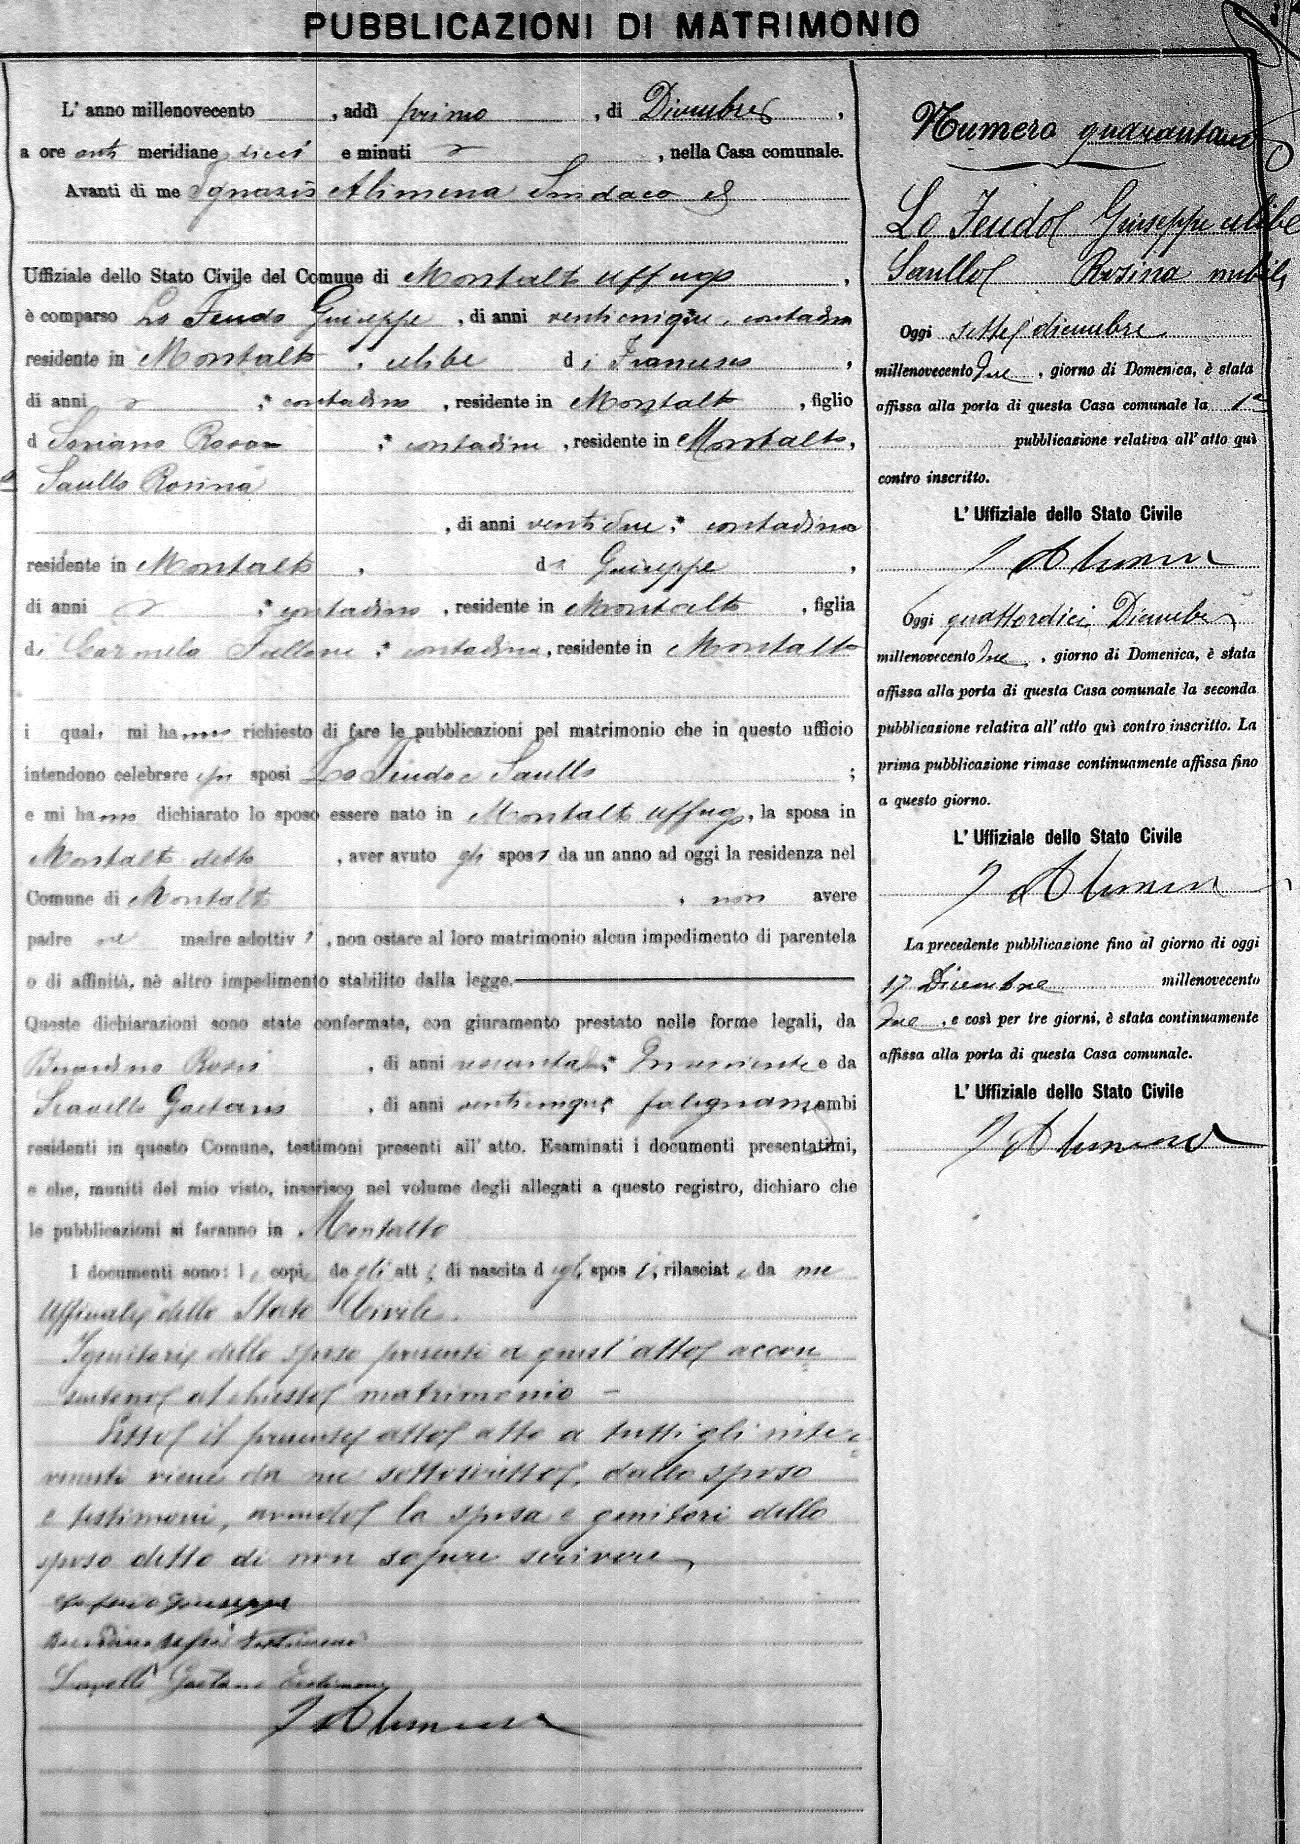 PUBBLICAZIONI DI MATRIMONIO
L' anno millenovecento , addì primo , di Dicembre ,
a ore anti meridiane dieci e minuti , nella Casa comunale.
Avanti di me Ignazio Alimena Sindaco ed
Uffiziale dello Stato Civile del Comune di Montalto Uffugo ,
è comparso Lo Feudo Giuseppe , di anni venticinque , contadino
residente in Montalto , celibe di Francesco ,
di anni , contadino , residente in Montalto , figlio
d Soriano Rosa contadina , residente in Montalto,
e Saullo Rosina
, di anni ventidue , contadina
residente in Montalto , di Giuseppe ,
di anni , contadino , residente in Montalto , figlia
di Carmela contadina , residente in Montalto
i quali mi hanno richiesto di fare le pubblicazioni pel matrimonio che in questo ufficio
intendono celebrare essi sposi Lo Feudo e Saullo ;
e mi hanno dichiarato lo sposo essere nato in Montalto Uffugo, la sposa in
Montalto detto , aver avuto gli sposi da un anno ad oggi la residenza nel
Comune di Montalto , non avere
padre nè madre adottivi , non ostare al loro matrimonio alcun impedimento di parentela
o di affinità, nè altro impedimento stabilito dalla legge.
Queste dichiarazioni sono state confermate, con giuramento prestato nelle forme legali, da
, di anni e da
Gaetano , di anni venticinque, falegname, ambi
residenti in questo Comune, testimoni presenti all' atto. Esaminati i documenti presentatimi,
e che, muniti del mio visto, inserisco nel volume degli allegati a questo registro, dichiaro che
le pubblicazioni si faranno in Montalto
I documenti sono: le copie degli atti di nascita degli sposi, rilasciate da me
Uffiziale dello Stato Civile.
I genitori dello sposo presenti a quest' atto accon
sentono al chiesto matrimonio –
Letto il presente atto atto a tutti gli inter
venuti viene da me sottoscritto, dallo sposo
e testimoni, avendo la sposa e genitori dello
sposo detto di non sapere scrivere
Lo Feudo Giuseppe
testimone
Gaetano testimone
I Alimena
Numero
Lo Feudo Giuseppe celibe
Saullo Rosina nubile
Oggi sette dicembre
millenovecento due , giorno di Domenica, è stata
affissa alla porta di questa Casa comunale la 1ª
pubblicazione relativa all' atto quì
contro inscritto.
L' Uffiziale dello Stato Civile
I Alimena
Oggi quattordici Dicembre
millenovecento due , giorno di Domenica, è stata
affissa alla porta di questa Casa comunale la seconda
pubblicazione relativa all' atto quì contro inscritto. La
prima pubblicazione rimase continuamente affissa fino
a questo giorno.
L' Uffiziale dello Stato Civile
I Alimena
La precedente pubblicazione fino al giorno di oggi
17 Dicembre millenovecento
due , e così per tre giorni, è stata continuamente
affissa alla porta di questa Casa comunale.
L' Uffiziale dello Stato Civile
I Alimena